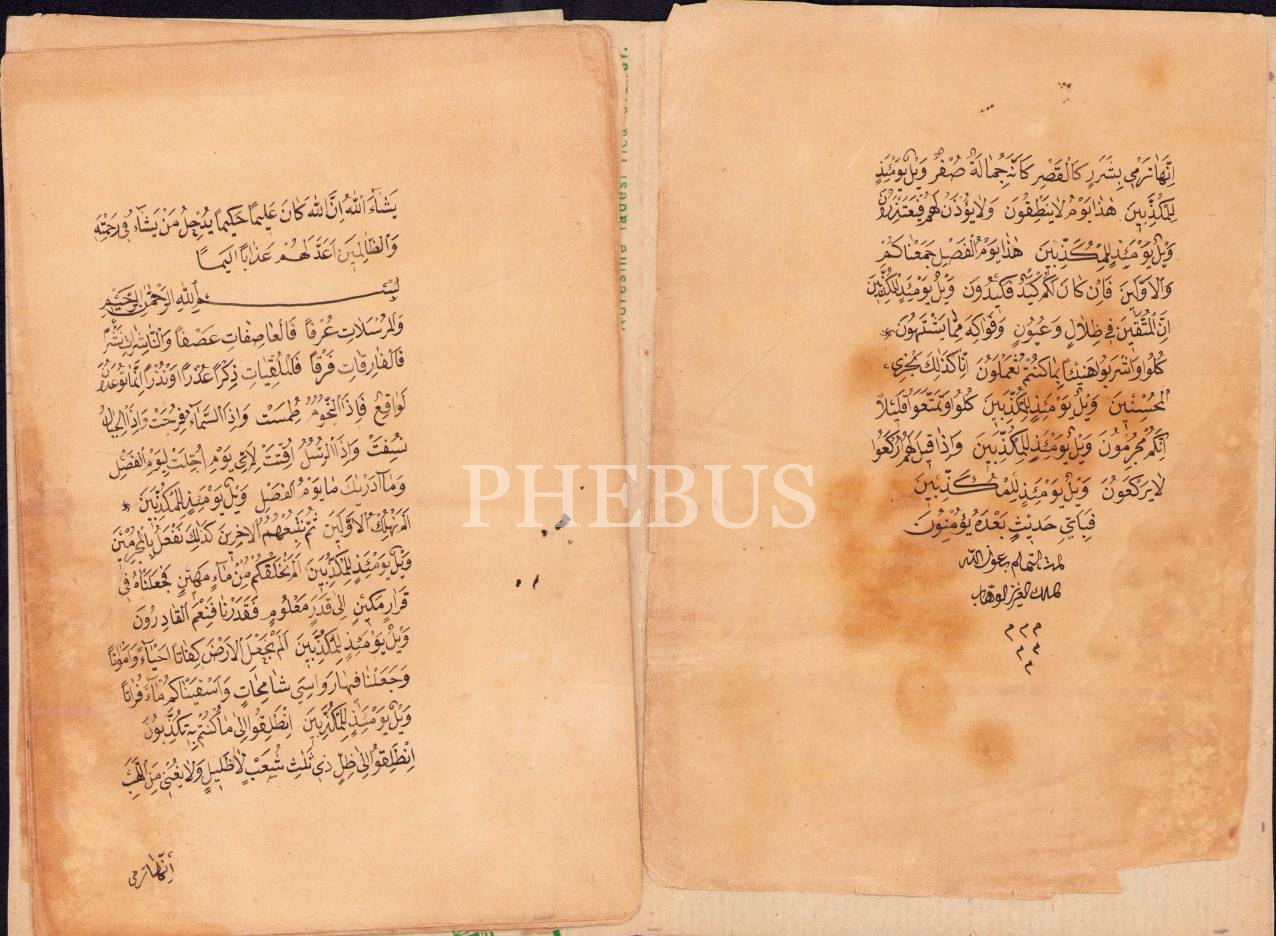 يَشَآءَ اللهُ اِنَّ اللهَ كَانَ عَلِيمًا حَكِيمًا يُدْخِلُ مَنْ يَشَآءُ فِى رَحْمَتِهِ
وَالظَّالِمِينَ اَعَدَّ لَهُمْ عَذَابًا اَلِيمًا
بِسْمِ اللهِ الرَّحْمٰنِ الرَّحِيمِ
وَالْمُرْسَلَاتِ عُرْفًا فَالْعَاصِفَاتِ عَصْفًا وَالنَّاشِرَاتِ نَشْرًا
فَالْفَارِقَاتِ فَرْقًا فَالْمُلْقِيَاتِ ذِكْرًا عُذْرًا اَوْ نُذْرًا اِنَّمَا تُوعَدُونَ
لَوَاقِعٌ فَاِذَا النُّجُومُ طُمِسَتْ وَاِذَا السَّمَآءُ فُرِجَتْ وَاِذَا الْجِبَالُ
نُسِفَتْ وَاِذَا الرُّسُلُ اُقِّتَتْ لِاَىِّ يَوْمٍ اُجِّلَتْ لِيَوْمِ الْفَصْلِ
وَمَآ اَدْرٰيكَ مَا يَوْمُ الْفَصْلِ وَيْلٌ يَوْمَئِذٍ لِلْمُكَذِّبِينَ
اَلَمْ نُهْلِكِ الْاَوَّلِينَ ثُمَّ نُتْبِعُهُمُ الْاٰخِرِينَ كَذٰلِكَ نَفْعَلُ بِالْمُجْرِمِينَ
وَيْلٌ يَوْمَئِذٍ لِلْمُكَذِّبِينَ اَلَمْ نَخْلُقْكُمْ مِنْ مَآءٍ مَهِينٍ فَجَعَلْنَاهُ فِى
قَرَارٍ مَكِينٍ اِلٰى قَدَرٍ مَعْلُومٍ فَقَدَرْنَا فَنِعْمَ الْقَادِرُونَ
وَيْلٌ يَوْمَئِذٍ لِلْمُكَذِّبِينَ اَلَمْ نَجْعَلِ الْاَرْضَ كِفَاتًا اَحْيَآءً وَاَمْوَاتًا
وَجَعَلْنَا فِيهَا رَوَاسِىَ شَامِخَاتٍ وَاَسْقَيْنَاكُمْ مَآءً فُرَاتًا
وَيْلٌ يَوْمَئِذٍ لِلْمُكَذِّبِينَ اِنْطَلِقُوا اِلٰى مَا كُنْتُمْ بِهِ تُكَذِّبُونَ
اِنْطَلِقُوا اِلٰى ظِلٍّ ذِى ثَلٰثِ شُعَبٍ لَا ظَلِيلٍ وَلَا يُغْنِى مِنَ اللَّهَبِ
اِنَّهَا تَرْمِى
اِنَّهَا تَرْمِى بِشَرَرٍ كَالْقَصْرِ كَاَنَّهُ جِمَالَةٌ صُفْرٌ وَيْلٌ يَوْمَئِذٍ
لِلْمُكَذِّبِينَ هٰذَا يَوْمُ لَا يَنْطِقُونَ وَلَا يُؤْذَنُ لَهُمْ فَيَعْتَذِرُونَ
وَيْلٌ يَوْمَئِذٍ لِلْمُكَذِّبِينَ هٰذَا يَوْمُ الْفَصْلِ جَمَعْنَاكُمْ
وَالْاَوَّلِينَ فَاِنْ كَانَ لَكُمْ كَيْدٌ فَكِيدُونِ وَيْلٌ يَوْمَئِذٍ لِلْمُكَذِّبِينَ
اِنَّ الْمُتَّقِينَ فِى ظِلَالٍ وَعُيُونٍ وَفَوَاكِهَ مِمَّا يَشْتَهُونَ
كُلُوا وَاشْرَبُوا هَنِيئًا بِمَا كُنْتُمْ تَعْمَلُونَ اِنَّا كَذٰلِكَ نَجْزِى
الْمُحْسِنِينَ وَيْلٌ يَوْمَئِذٍ لِلْمُكَذِّبِينَ كُلُوا وَتَمَتَّعُوا قَلِيلًا
اِنَّكُمْ مُجْرِمُونَ وَيْلٌ يَوْمَئِذٍ لِلْمُكَذِّبِينَ وَاِذَا قِيلَ لَهُمُ ارْكَعُوا
لَا يَرْكَعُونَ وَيْلٌ يَوْمَئِذٍ لِلْمُكَذِّبِينَ
فَبِاَىِّ حَدِيثٍ بَعْدَهُ يُؤْمِنُونَ
تمت التمام بعون الله
الملك العزيز الوهاب
م م م
PHEBUS